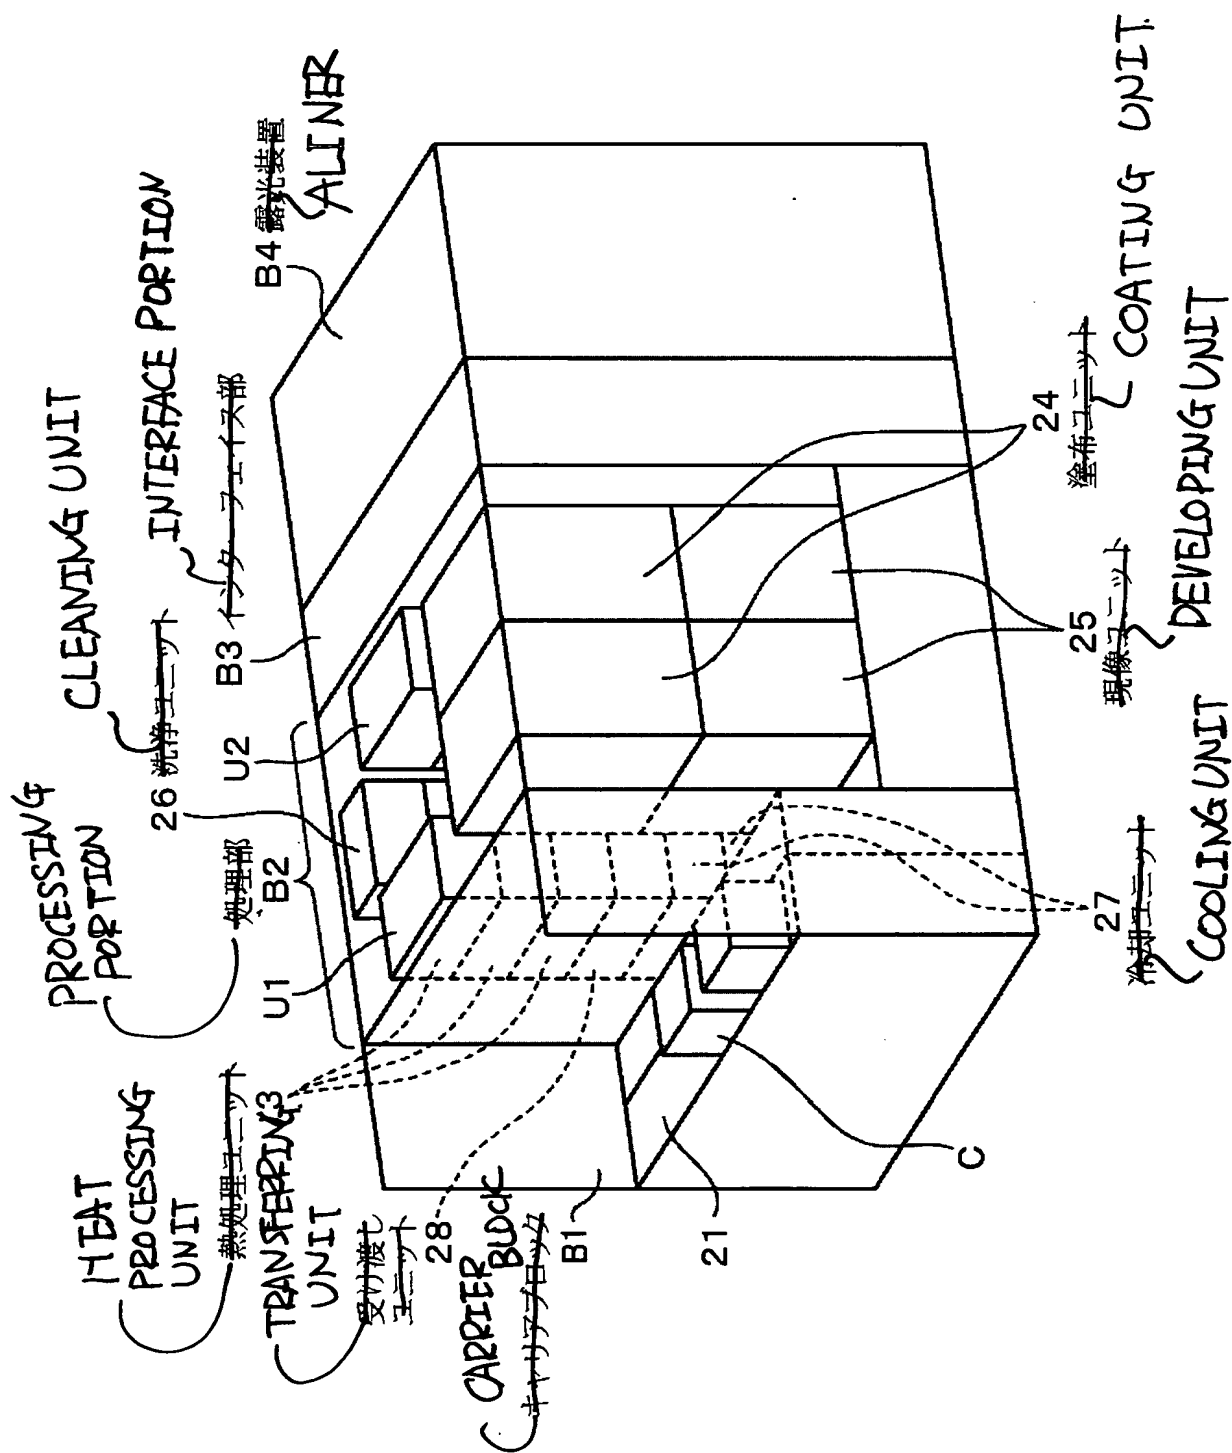 HEAT
PROCESSING
UNIT
熱処理ユニット
3
TRANSFERRING
UNIT
受け渡し
ユニット
28
CARRIER
BLOCK
キャリアブロック
B1
21
C
PROCESSING
PORTION
処理部
B2
U1
CLEANING UNIT
26 洗浄ユニット
U2
INTERFACE PORTION
B3 インターフェイス部
B4 露光装置
ALINER
27
冷却ユニット
COOLING UNIT
25
現像ユニット
DEVELOPING UNIT
24
塗布ユニット
COATING UNIT